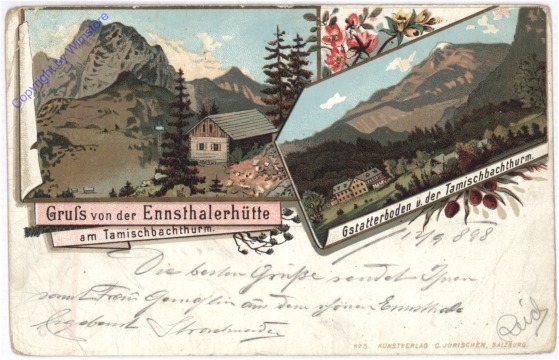 Copyright by Wunstore
Gruß von der Ennsthalerhütte
am Tamischbachthurm.
Gstatterboden u. der Tamischbachthurm.
12/9 898
Die besten Grüße sendet Ihnen
samt Frau Gemahlin aus dem schönen Ennsthale
Ergebenst
No 5. KUNSTVERLAG C. JURISCHEK, SALZBURG.